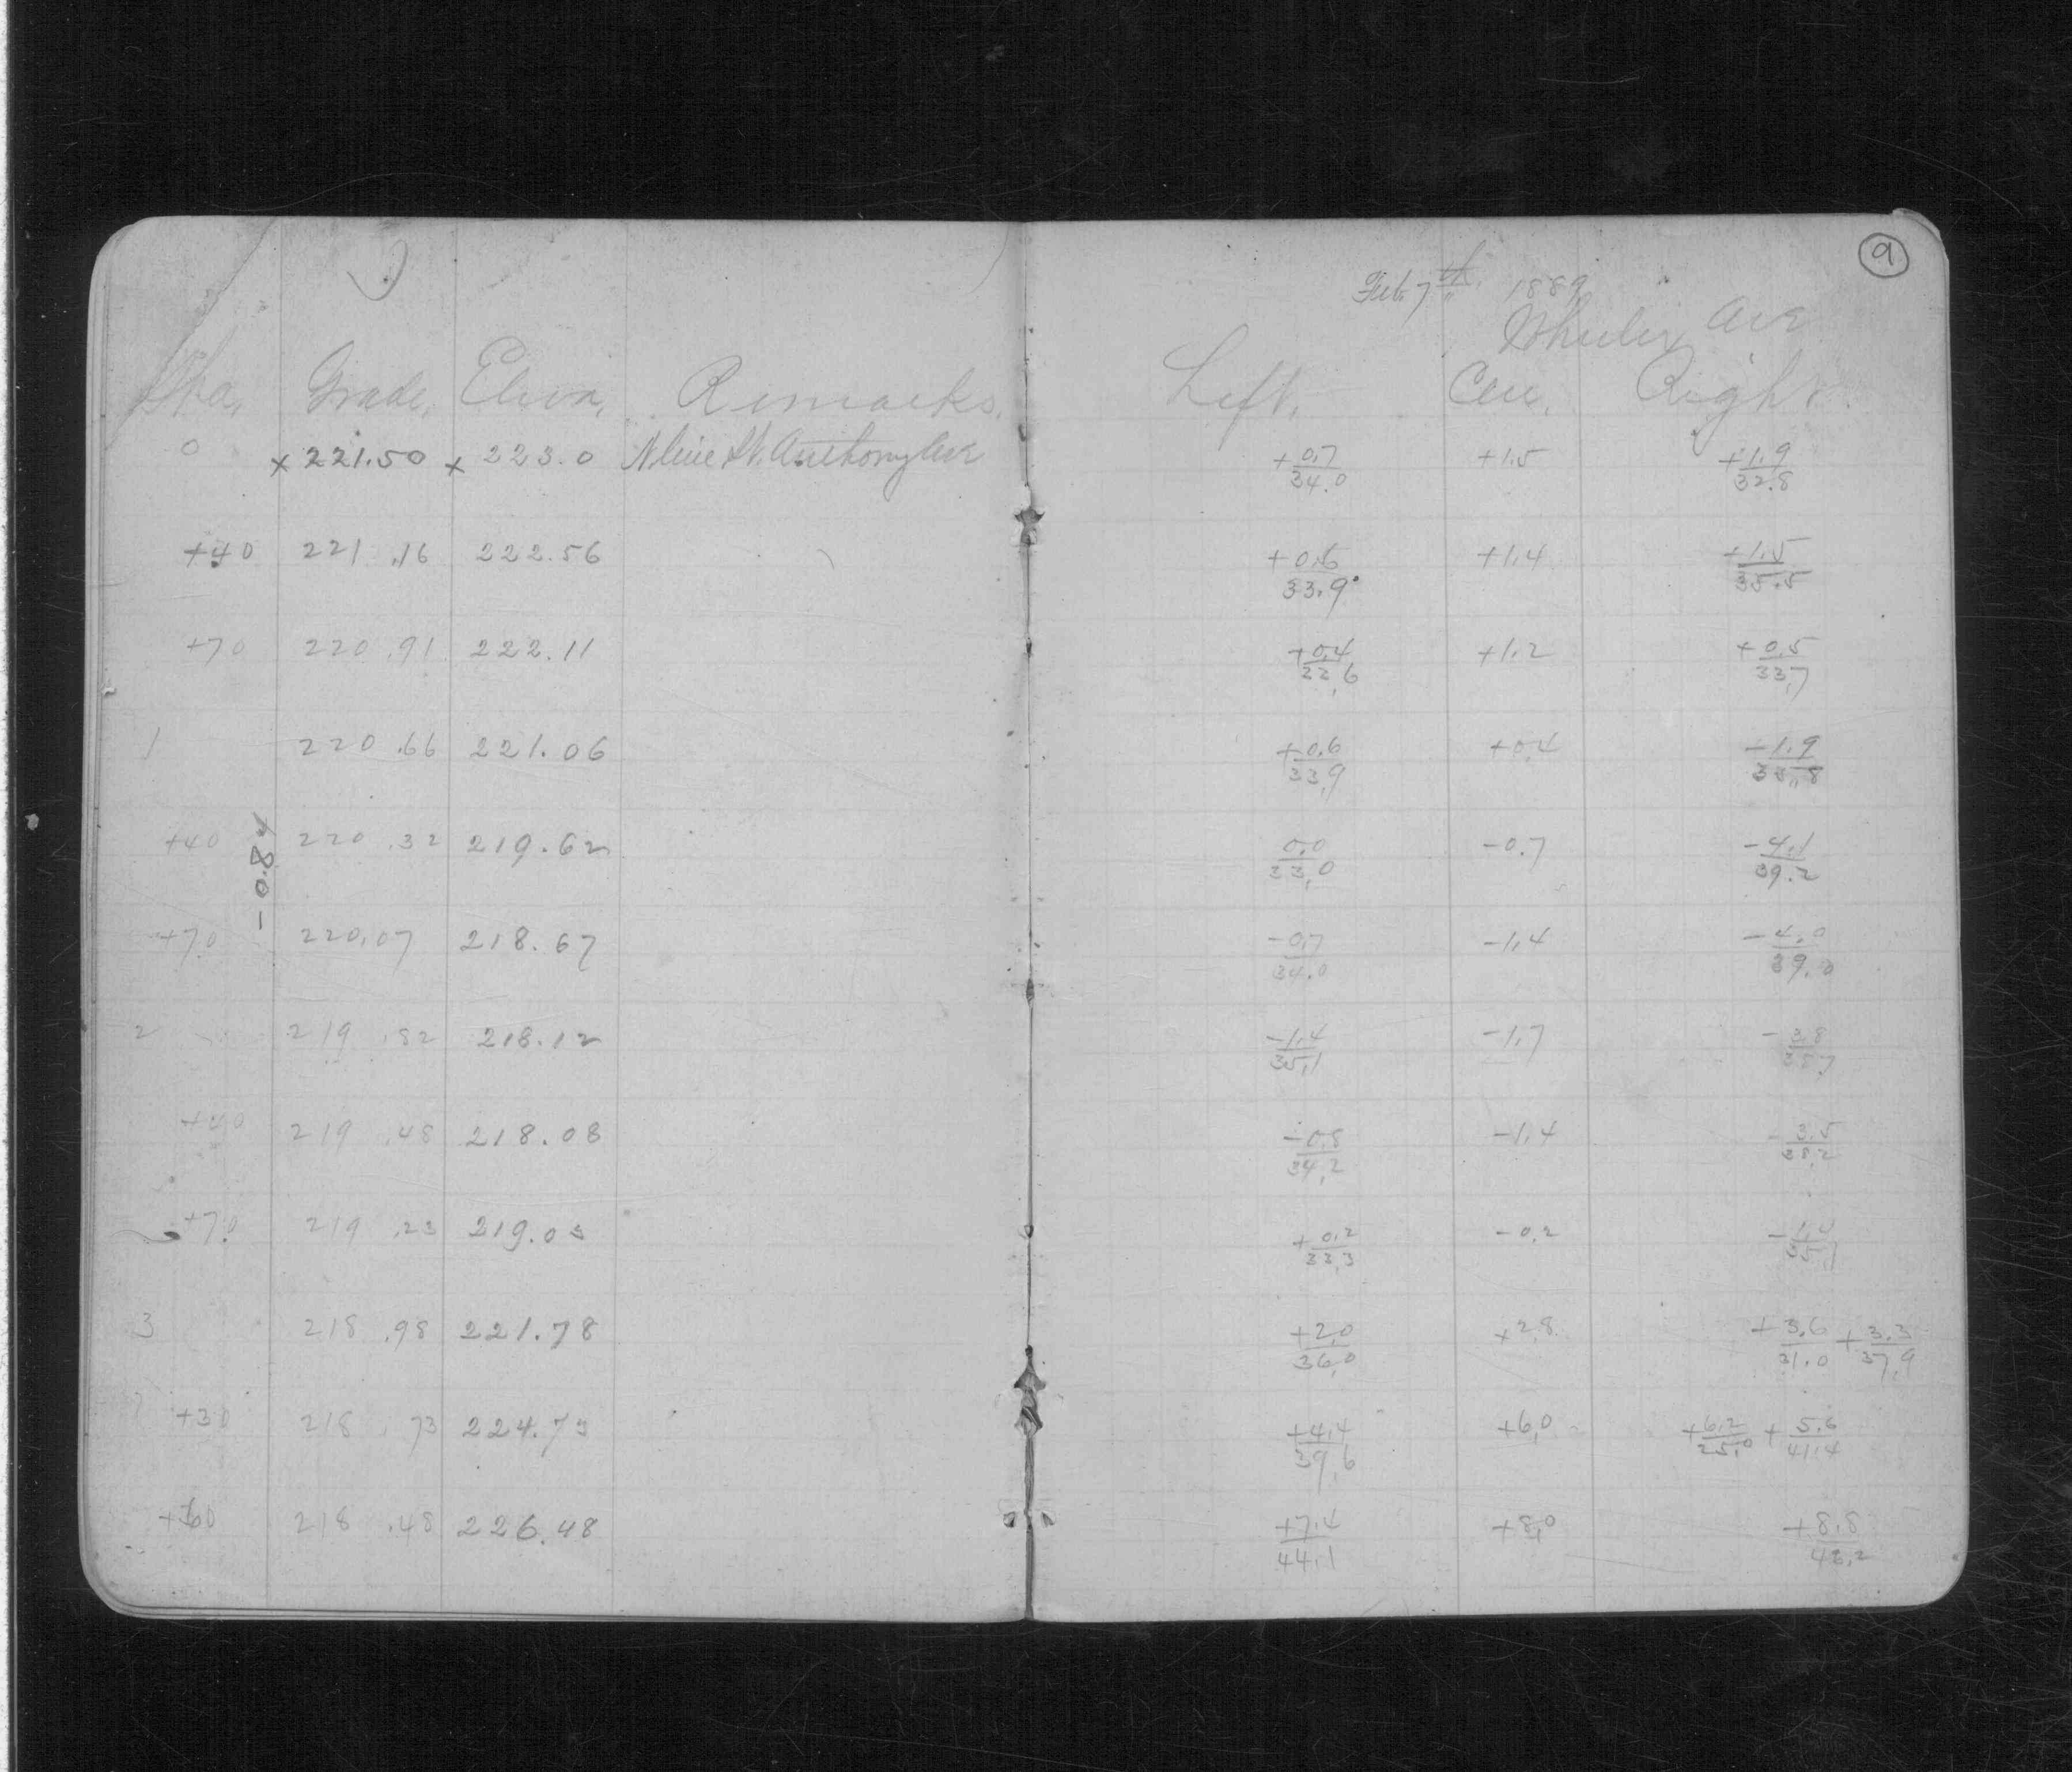 9
Feb. 7th 1889
Wheeler Ave
Sta. Grade. Eleva. Remarks. Left. Cen. Right.
0 x 221.50 x 223.0 N line St. Anthony Ave +0.7/34.0 +1.5 +1.9/32.8
+40 221.16 222.56 +0.6/33.9 +1.4 +1.5/35.5
+70 220.91 222.11 +0.4/22.6 +1.2 +0.5/33.7
1 220.66 221.06 +0.6/33.9 +0.4 -1.9/35.8
+40 220.32 219.62 0.0/33.0 -0.7 -4.1/39.2
-0.84
+70 220.07 218.67 -0.7/34.0 -1.4 -4.0/39.0
2 219.82 218.12 -1.4/35.1 -1.7 -3.8
+40 219.48 218.08 -0.8/34.2 -1.4 -3.5/38.2
+70 219.23 219.03 +0.2/33.3 -0.2
3 218.98 221.78 +2.0/36.0 +2.8 +3.6/31.0 +3.3/37.9
+30 218.73 224.73 +4.4/39.6 +6.0 +6.2/25.0 +5.6/41.4
+60 218.48 226.48 +7.4/44.1 +8.0 +8.8/48.2